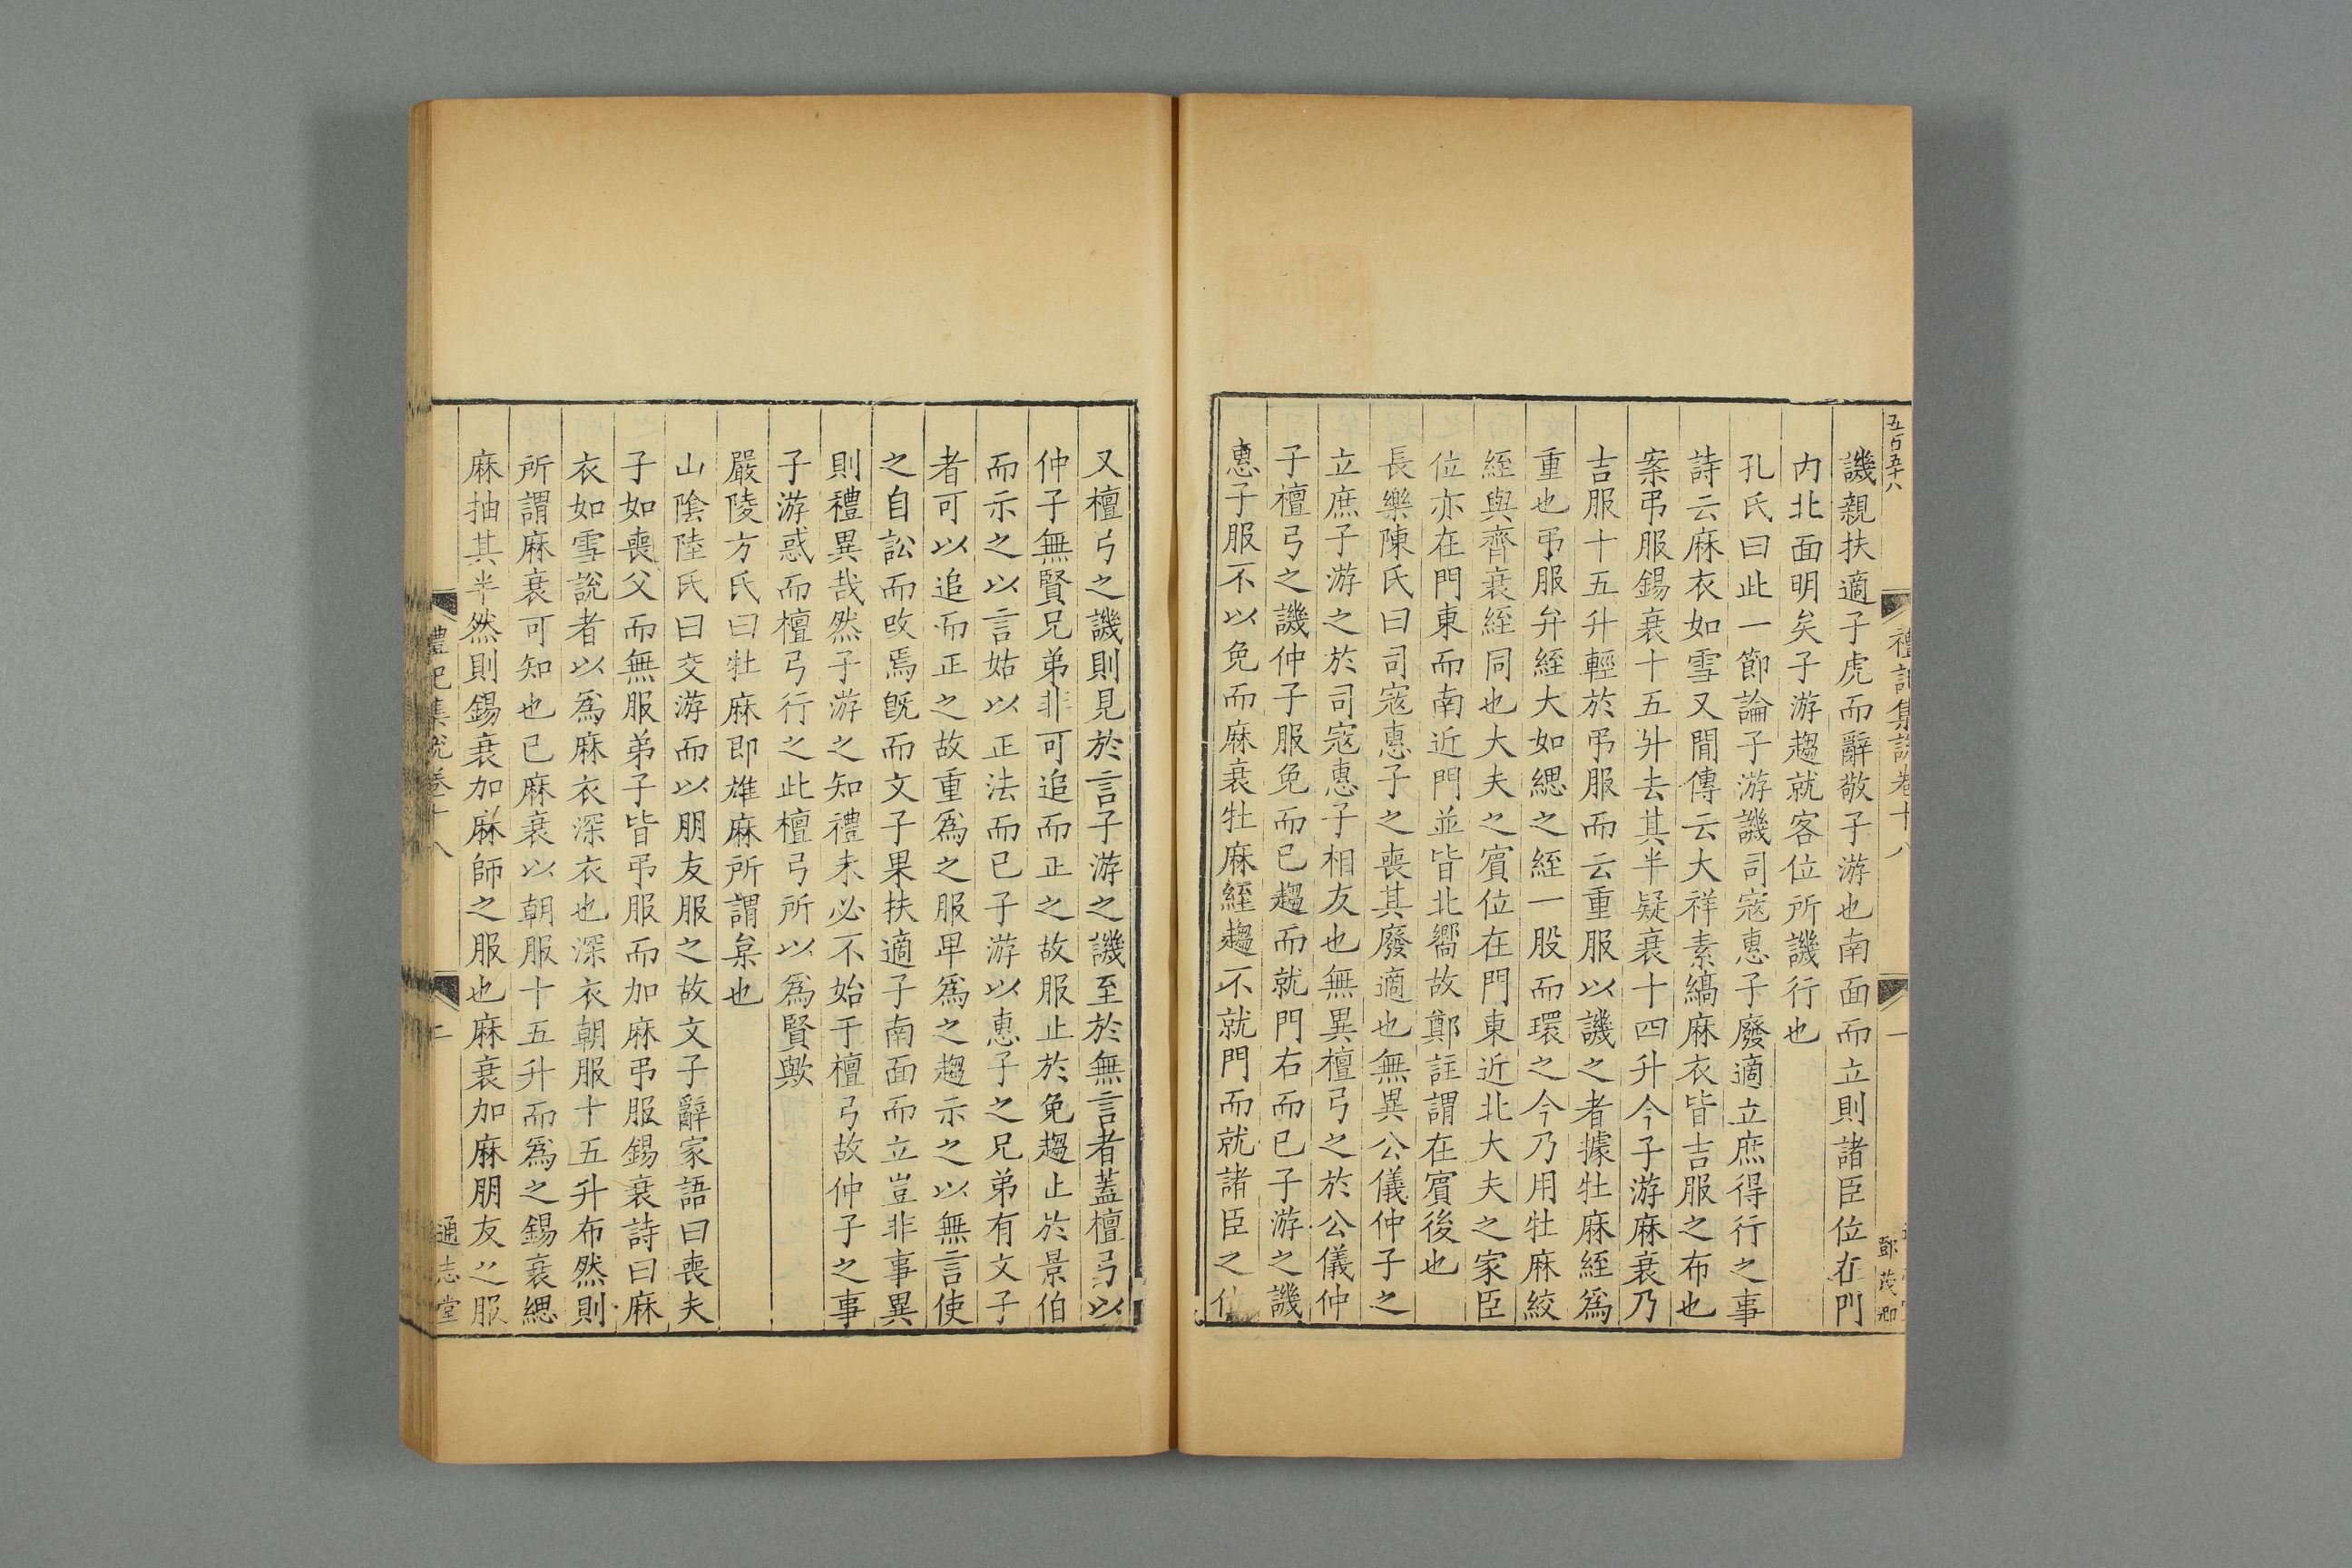 五百五十八
禮記集說卷十八
一
鄧茂卿
譏親扶適子虎而辭敬子游也南面而立則諸臣位在門
内北面明矣子游趨就客位所譏行也
孔氏曰此一節論子游譏司寇惠子廢適立庶得行之事
詩云麻衣如雪又閒傳云大祥素縞麻衣皆吉服之布也
案弔服錫衰十五升去其半疑衰十四升今子游麻衰乃
吉服十五升輕於弔服而云重服以譏之者據牡麻絰爲
重也弔服弁絰大如緦之絰一股而環之今乃用牡麻絞
絰與齊衰絰同也大夫之賓位在門東近北大夫之家臣
位亦在門東而南近門並皆北嚮故鄭註謂在賓後也
長樂陳氏曰司寇惠子之喪其廢適也無異公儀仲子之
立庶子游之於司寇惠子相友也無異檀弓之於公儀仲
子檀弓之譏仲子服免而已趨而就門右而已子游之譏
惠子服不以免而麻衰牡麻絰趨不就門而就諸臣之位
又檀弓之譏則見於言子游之譏至於無言者蓋檀弓以
仲子無賢兄弟非可追而正之故服止於免趨止於景伯
而示之以言姑以正法而已子游以惠子之兄弟有文子
者可以追而正之故重爲之服卑爲之趨示之以無言使
之自訟而改焉旣而文子果扶適子南面而立豈非事異
則禮異哉然子游之知禮未必不始于檀弓故仲子之事
子游惑而檀弓行之此檀弓所以爲賢歟
嚴陵方氏曰牡麻即雄麻所謂枲也
山陰陸氏曰交游而以朋友服之故文子辭家語曰喪夫
子如喪父而無服弟子皆弔服而加麻弔服錫衰詩曰麻
衣如雪說者以爲麻衣深衣也深衣朝服十五升布然則
所謂麻衰可知也已麻衰以朝服十五升而爲之錫衰緦
麻抽其半然則錫衰加麻師之服也麻衰加麻朋友之服
禮記集說卷十八
二
通志堂